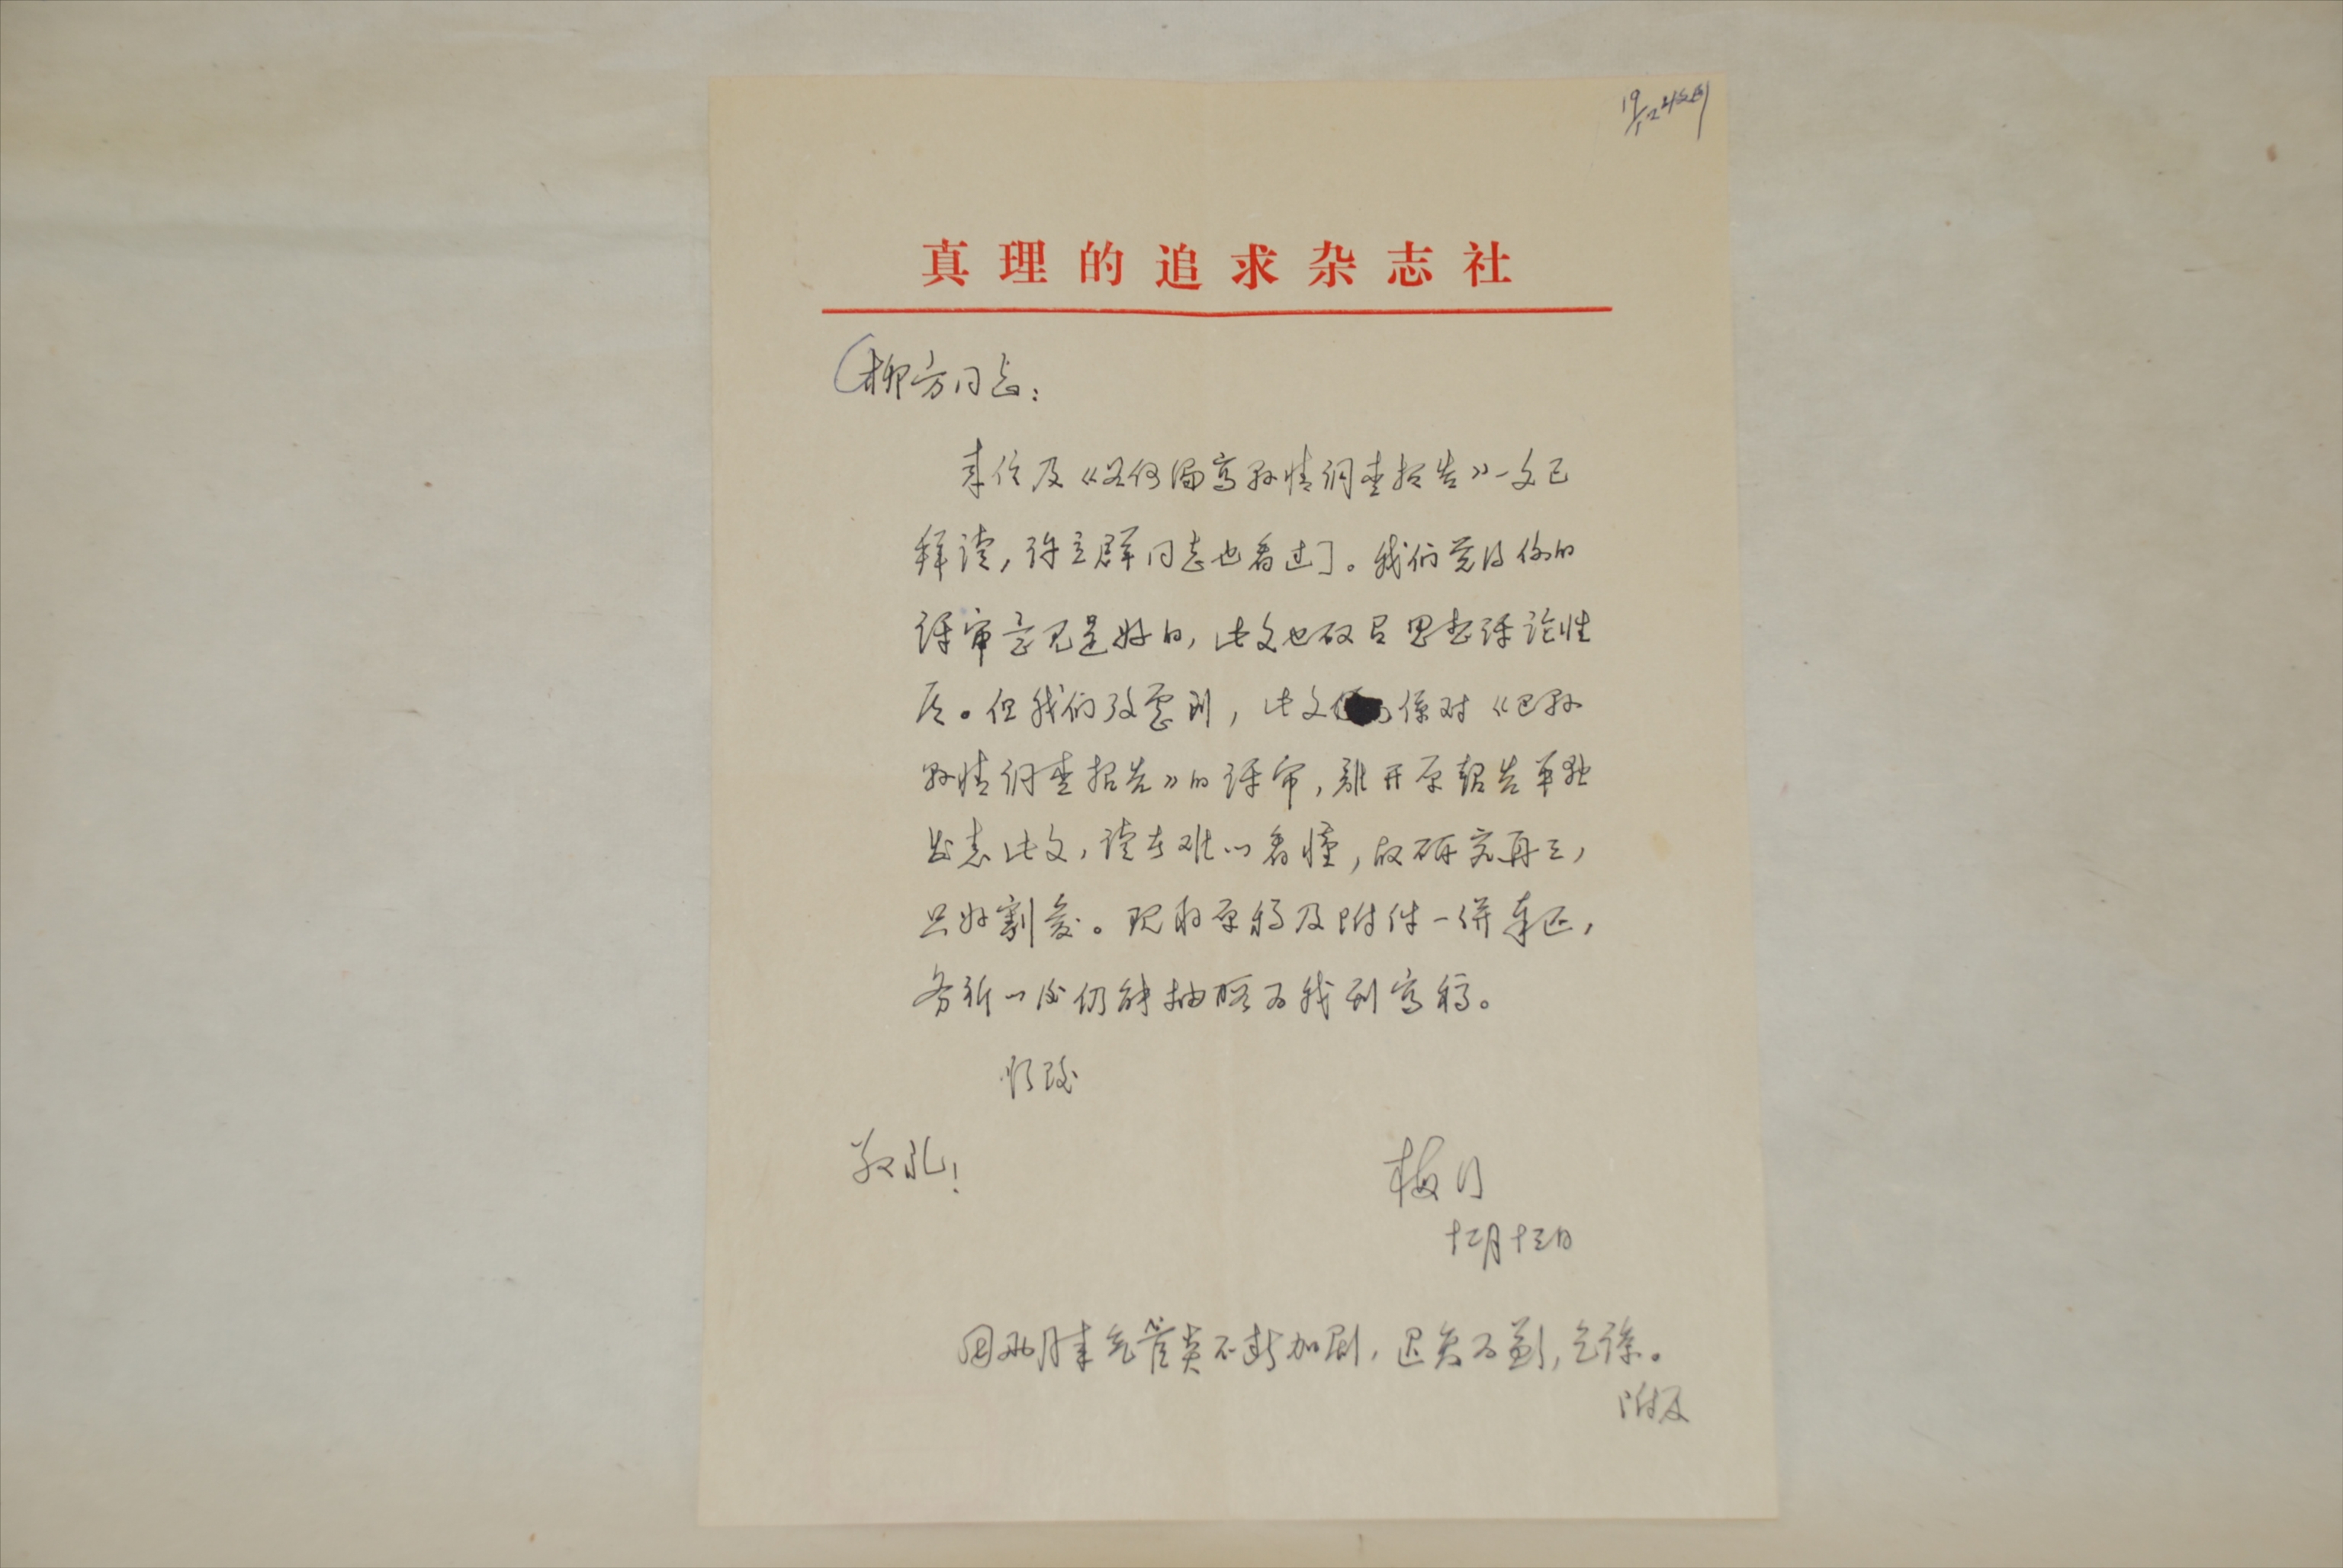 真理的追求杂志社
柳方同志:
来信及《如何编写县情调查报告》一文已
拜读,许立群同志也看过了。我们觉得你的
评审意见是好的,此文也颇具思想评论性
质。但我们考虑到,此文係对《巴县
县情调查报告》的评审,离开原报告单独
发表此文,读者难以看懂,故研究再三,
只好割爱。现将原稿及附件一併奉还,
务祈以后仍能抽暇为我刊写稿。
顺致
敬礼!
梅行
十二月十三日
因我月来气管炎不断加剧,迟复为歉,乞谅。
附及